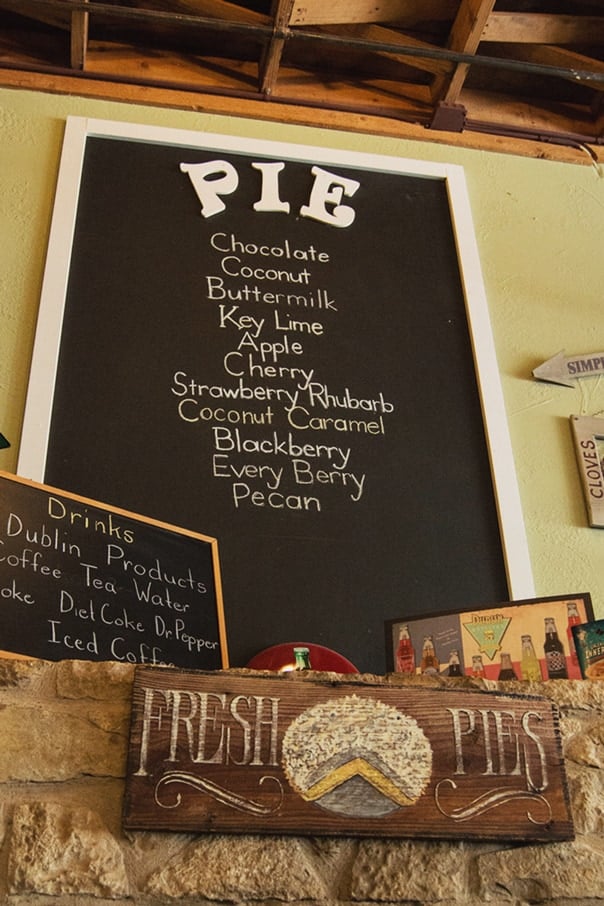 PIE
Chocolate
Coconut
Buttermilk
Key Lime
Apple
Cherry
Strawberry Rhubarb
Coconut Caramel
Blackberry
Every Berry
Pecan
SIMPL
CLOVES
Drinks
Dublin Products
Coffee Tea Water
oke Diet Coke Dr Pepper
Iced Coffee
FRESH PIES